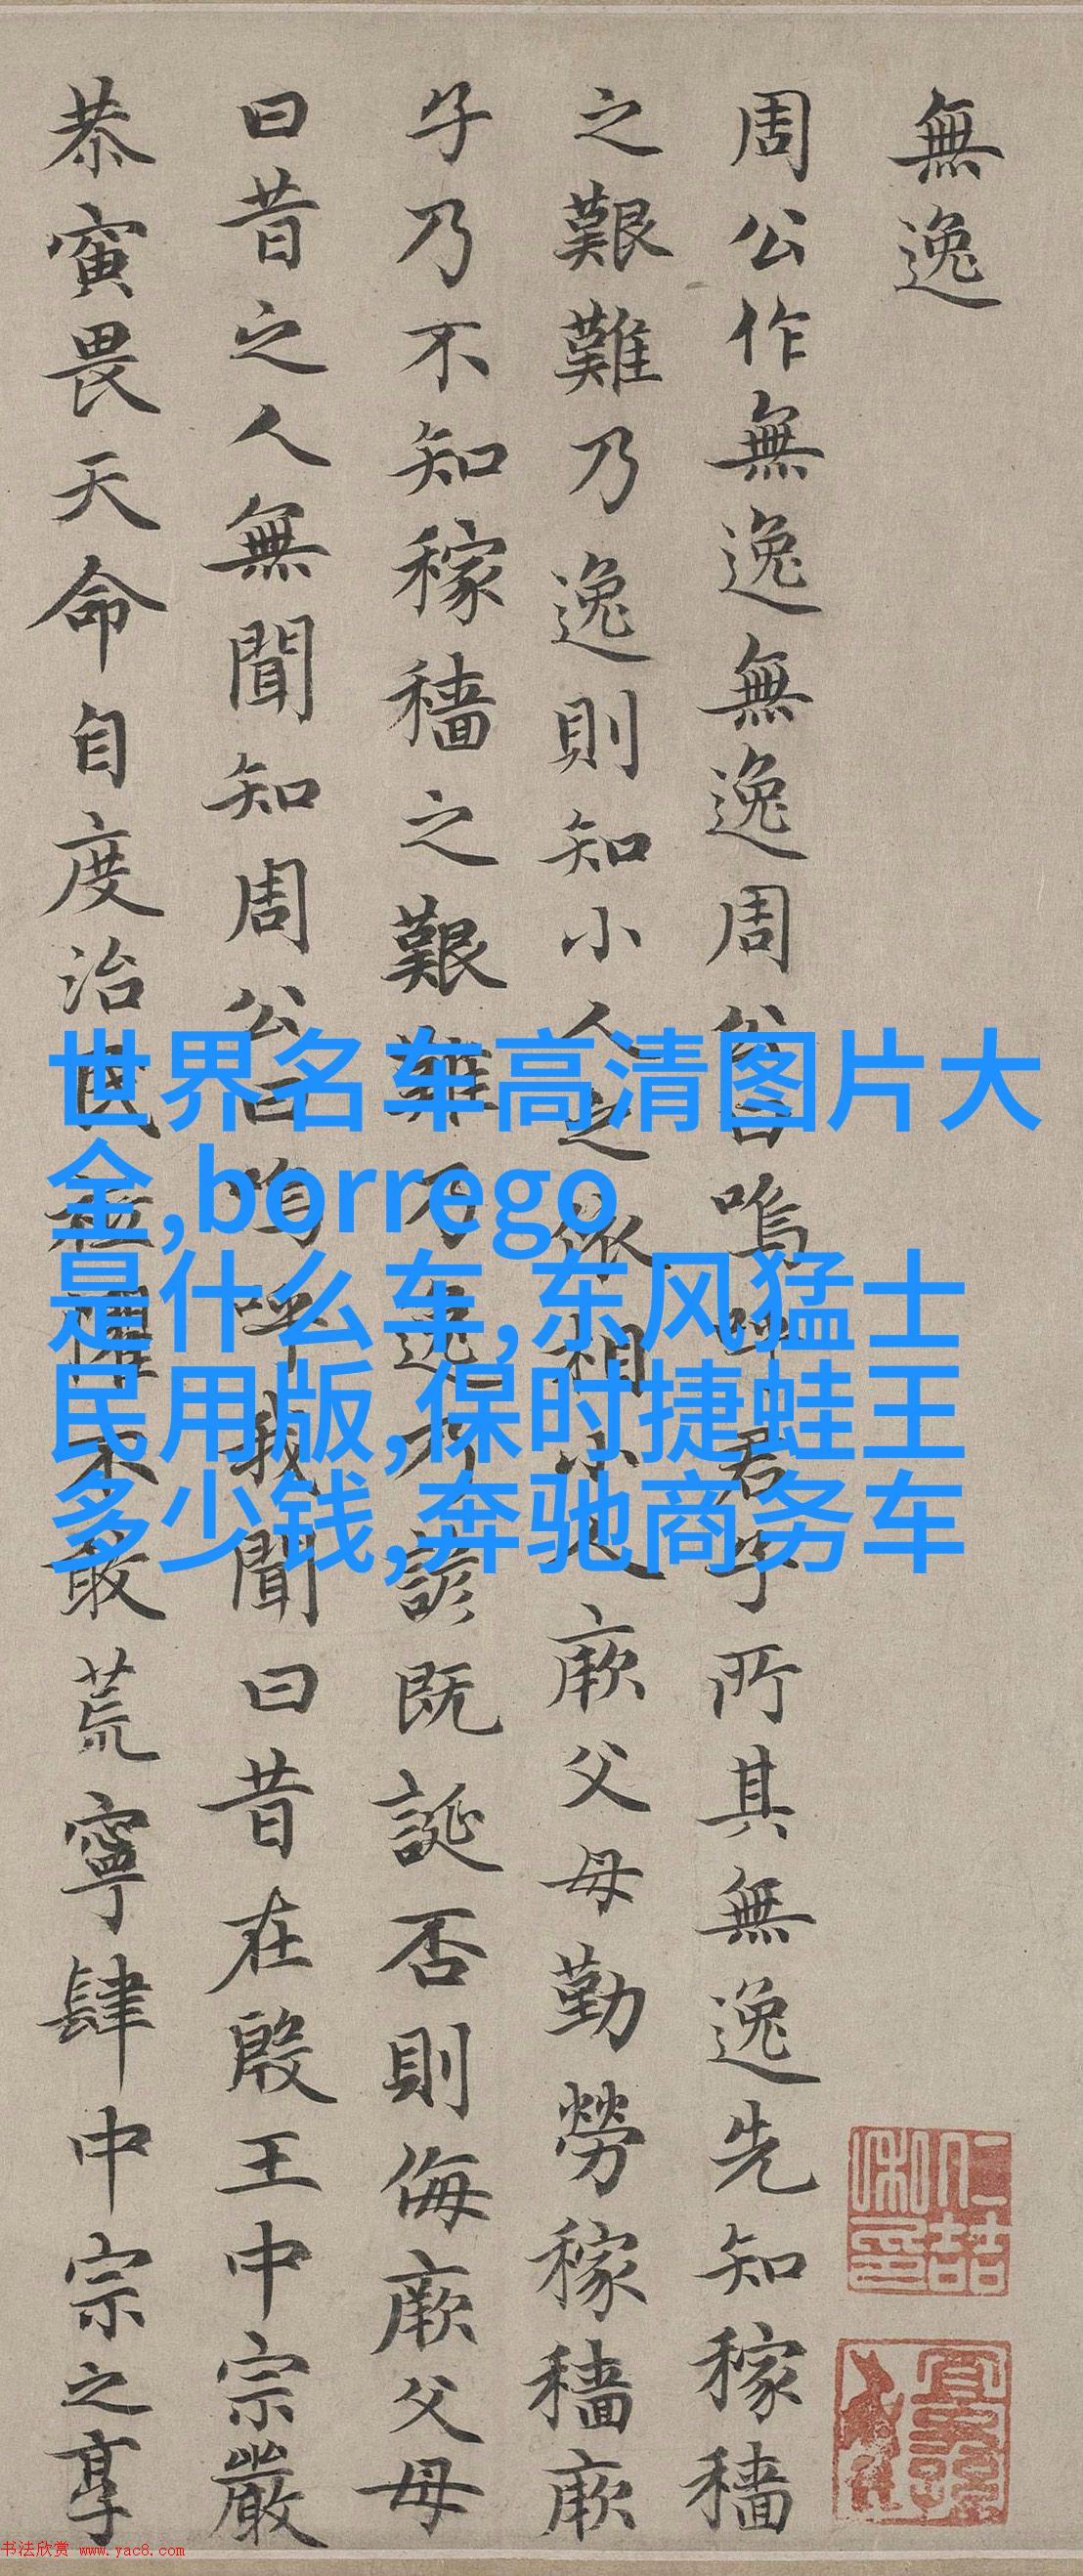 無逸
周公作無逸無逸周公曰嗚呼君子所其無逸先知稼穡
之艱難乃逸則知小人之依相小人厥父母勤勞稼穡厥
子乃不知稼穡之艱難乃逸乃諺既誕否則侮厥父母
曰昔之人無聞知周公曰嗚呼我聞曰昔在殷王中宗嚴
恭寅畏天命自度治民祗懼不敢荒寧肆中宗之享
世界名车高清图片大
全,borrego
是什么车,东风猛士
民用版,保时捷蛙王
多少钱,奔驰商务车
书法欣赏 www.yac8.com